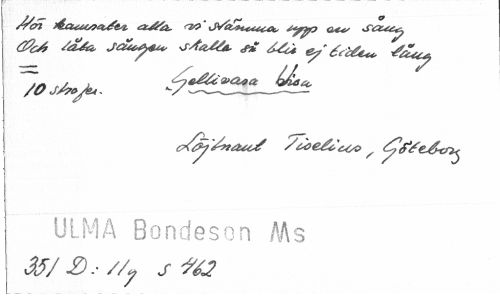 Hör kamrater alla vi stämma upp en sång
Och låta sången skalla så blir ej tiden lång
=
10 strofer. Gellivara visa
Löjtnant Tiselius, Göteborg
ULMA Bondeson Ms
351 D: 11q s 462